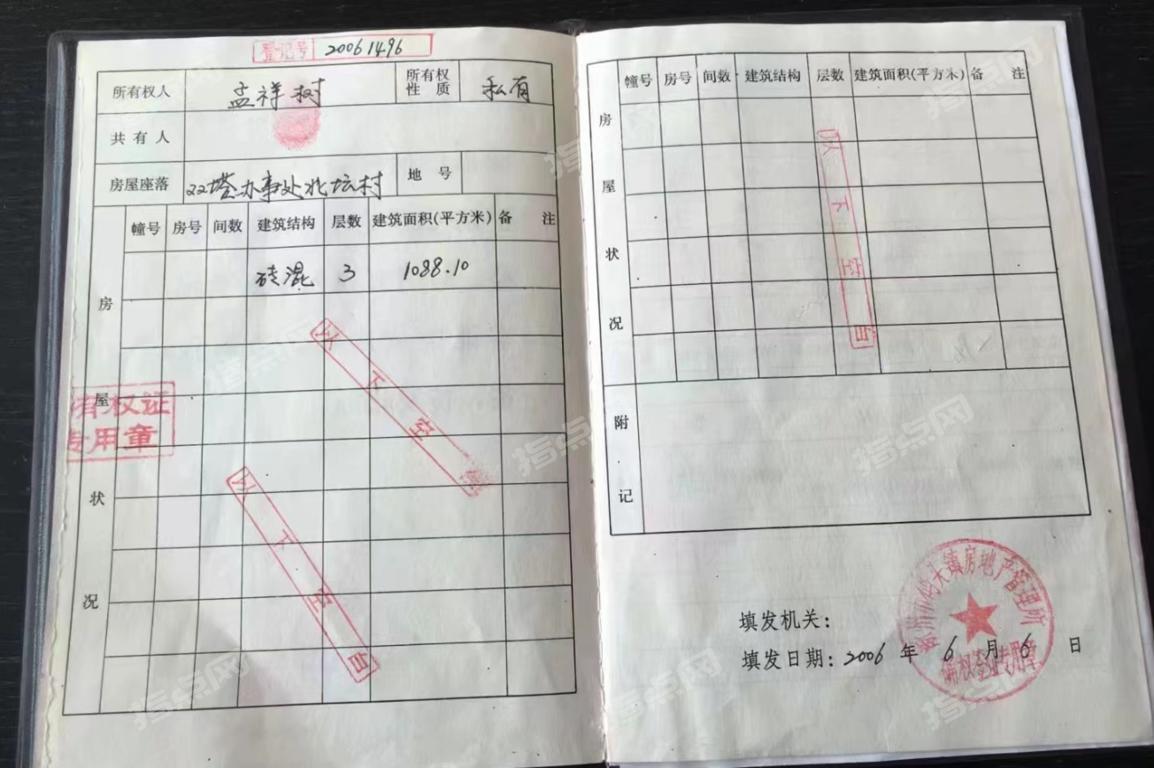 登记号 20061496
所有权人 孟祥树 所有权性质 私有
共有人
房屋座落 22塔办事处北坛村 地号
房屋状况
幢号 房号 间数 建筑结构 层数 建筑面积(平方米) 备注
砖混 3 1088.10
以下空白
以下空白
有权证
专用章
房屋状况
幢号 房号 间数 建筑结构 层数 建筑面积(平方米) 备注
以下空白
附记
填发机关:
填发日期: 2006 年 6 月 6 日
镇房地产管理所
专用章
指点网